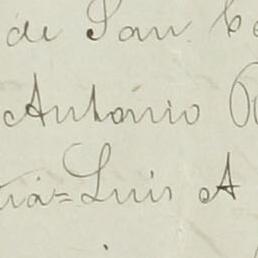 de San
António
ria=Luis A